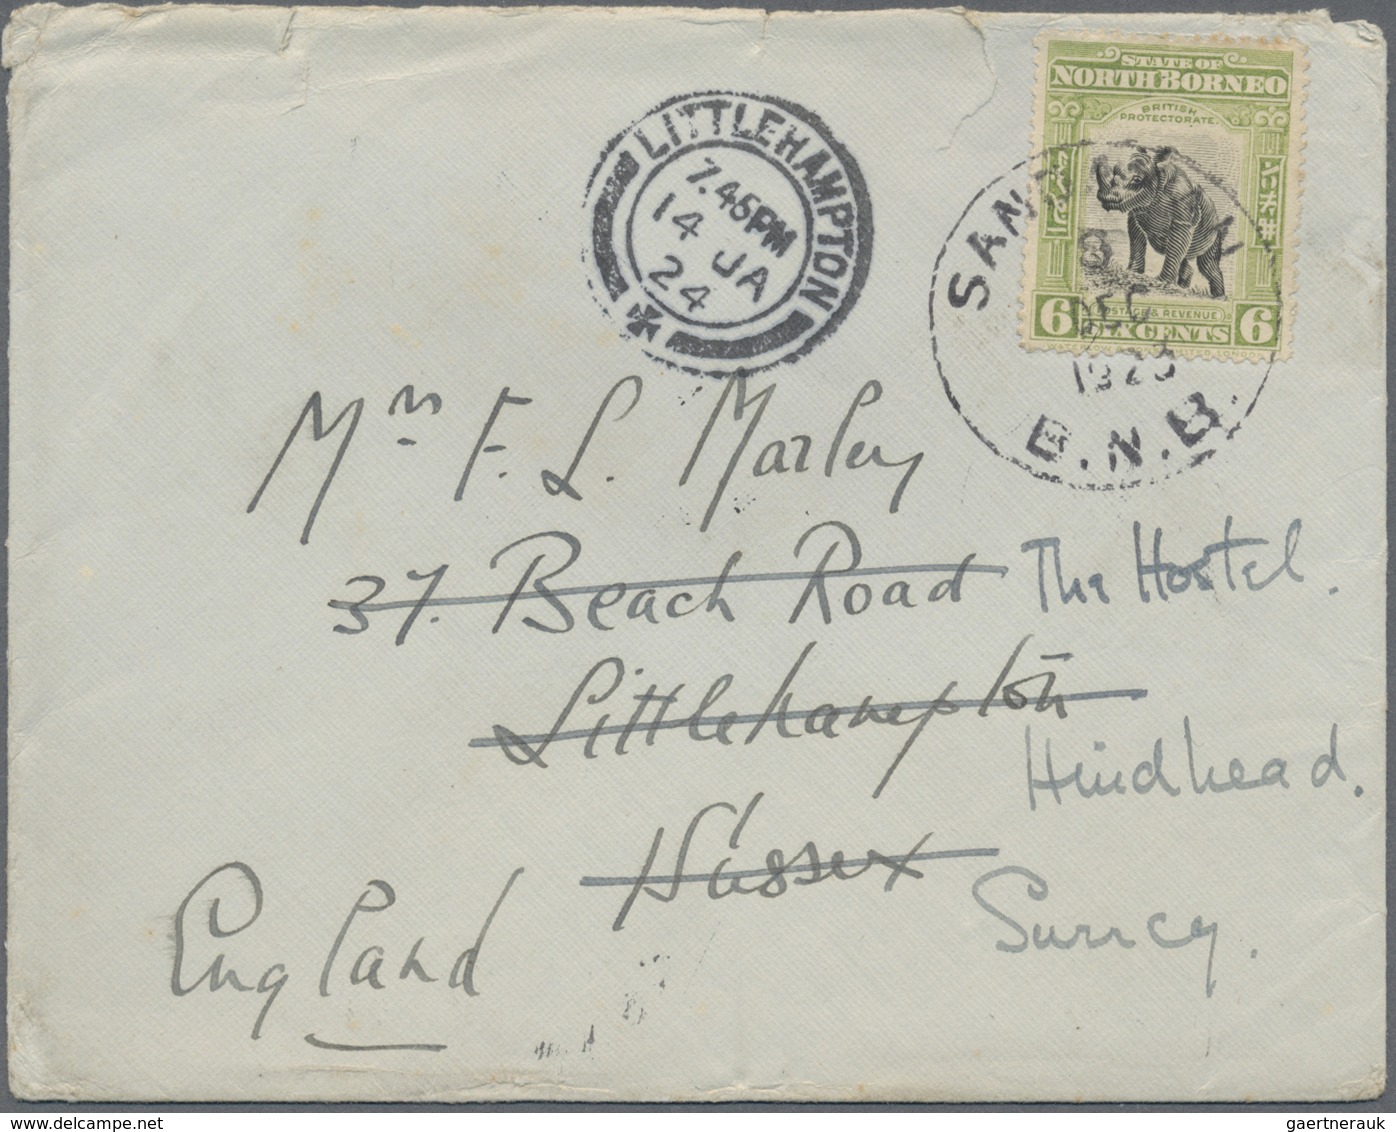 STATE OF
NORTH BORNEO
BRITISH
PROTECTORATE.
POSTAGE & REVENUE
6 SIX CENTS 6
LITTLEHAMPTON
7.45PM
14 JA
24
8
DEC
1923
B.N.B.
Mrs F. L. Marley
37. Beach Road
The Hostel.
Littlehampton
Hindhead.
Sussex
Surrey.
England
gaertnerauk